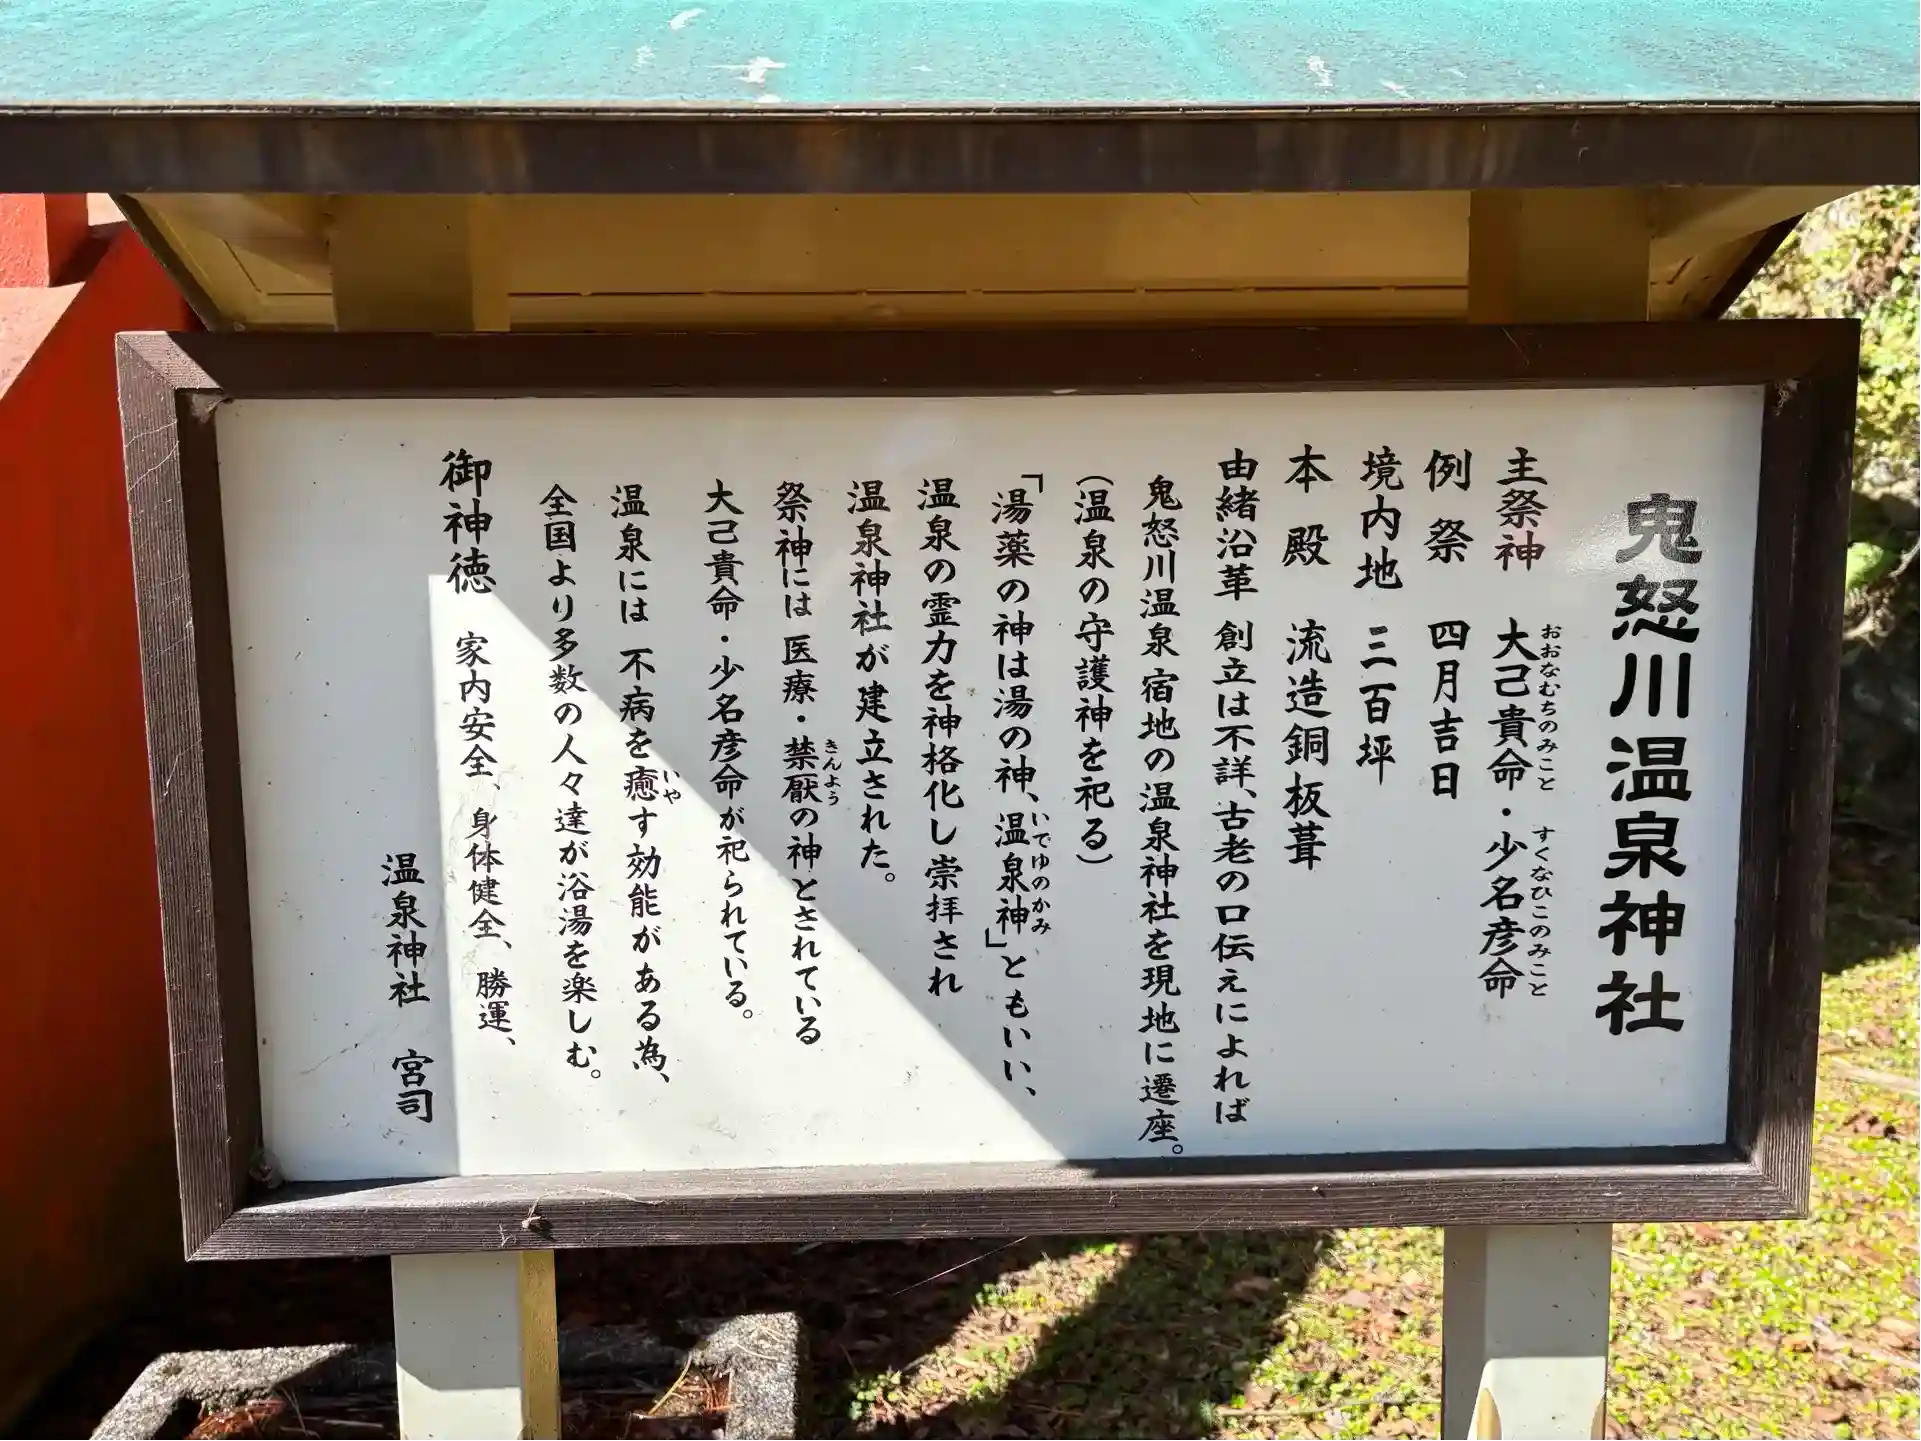 鬼怒川温泉神社
主祭神 大己貴命・少名彦命
おおなむちのみこと すくなひこのみこと
例祭 四月吉日
境内地 三百坪
本殿 流造銅板葺
由緒沿革 創立は不詳、古老の口伝えによれば
鬼怒川温泉宿地の温泉神社を現地に遷座。
(温泉の守護神を祀る)
「湯薬の神は湯の神、温泉神」ともいい、
いでゆのかみ
温泉の霊力を神格化し崇拝され
温泉神社が建立された。
祭神には医療・禁厭の神とされている
きんよう
大己貴命・少名彦命が祀られている。
温泉には不病を癒す効能がある為、
いや
全国より多数の人々達が浴湯を楽しむ。
御神徳 家内安全、身体健全、勝運、
温泉神社 宮司